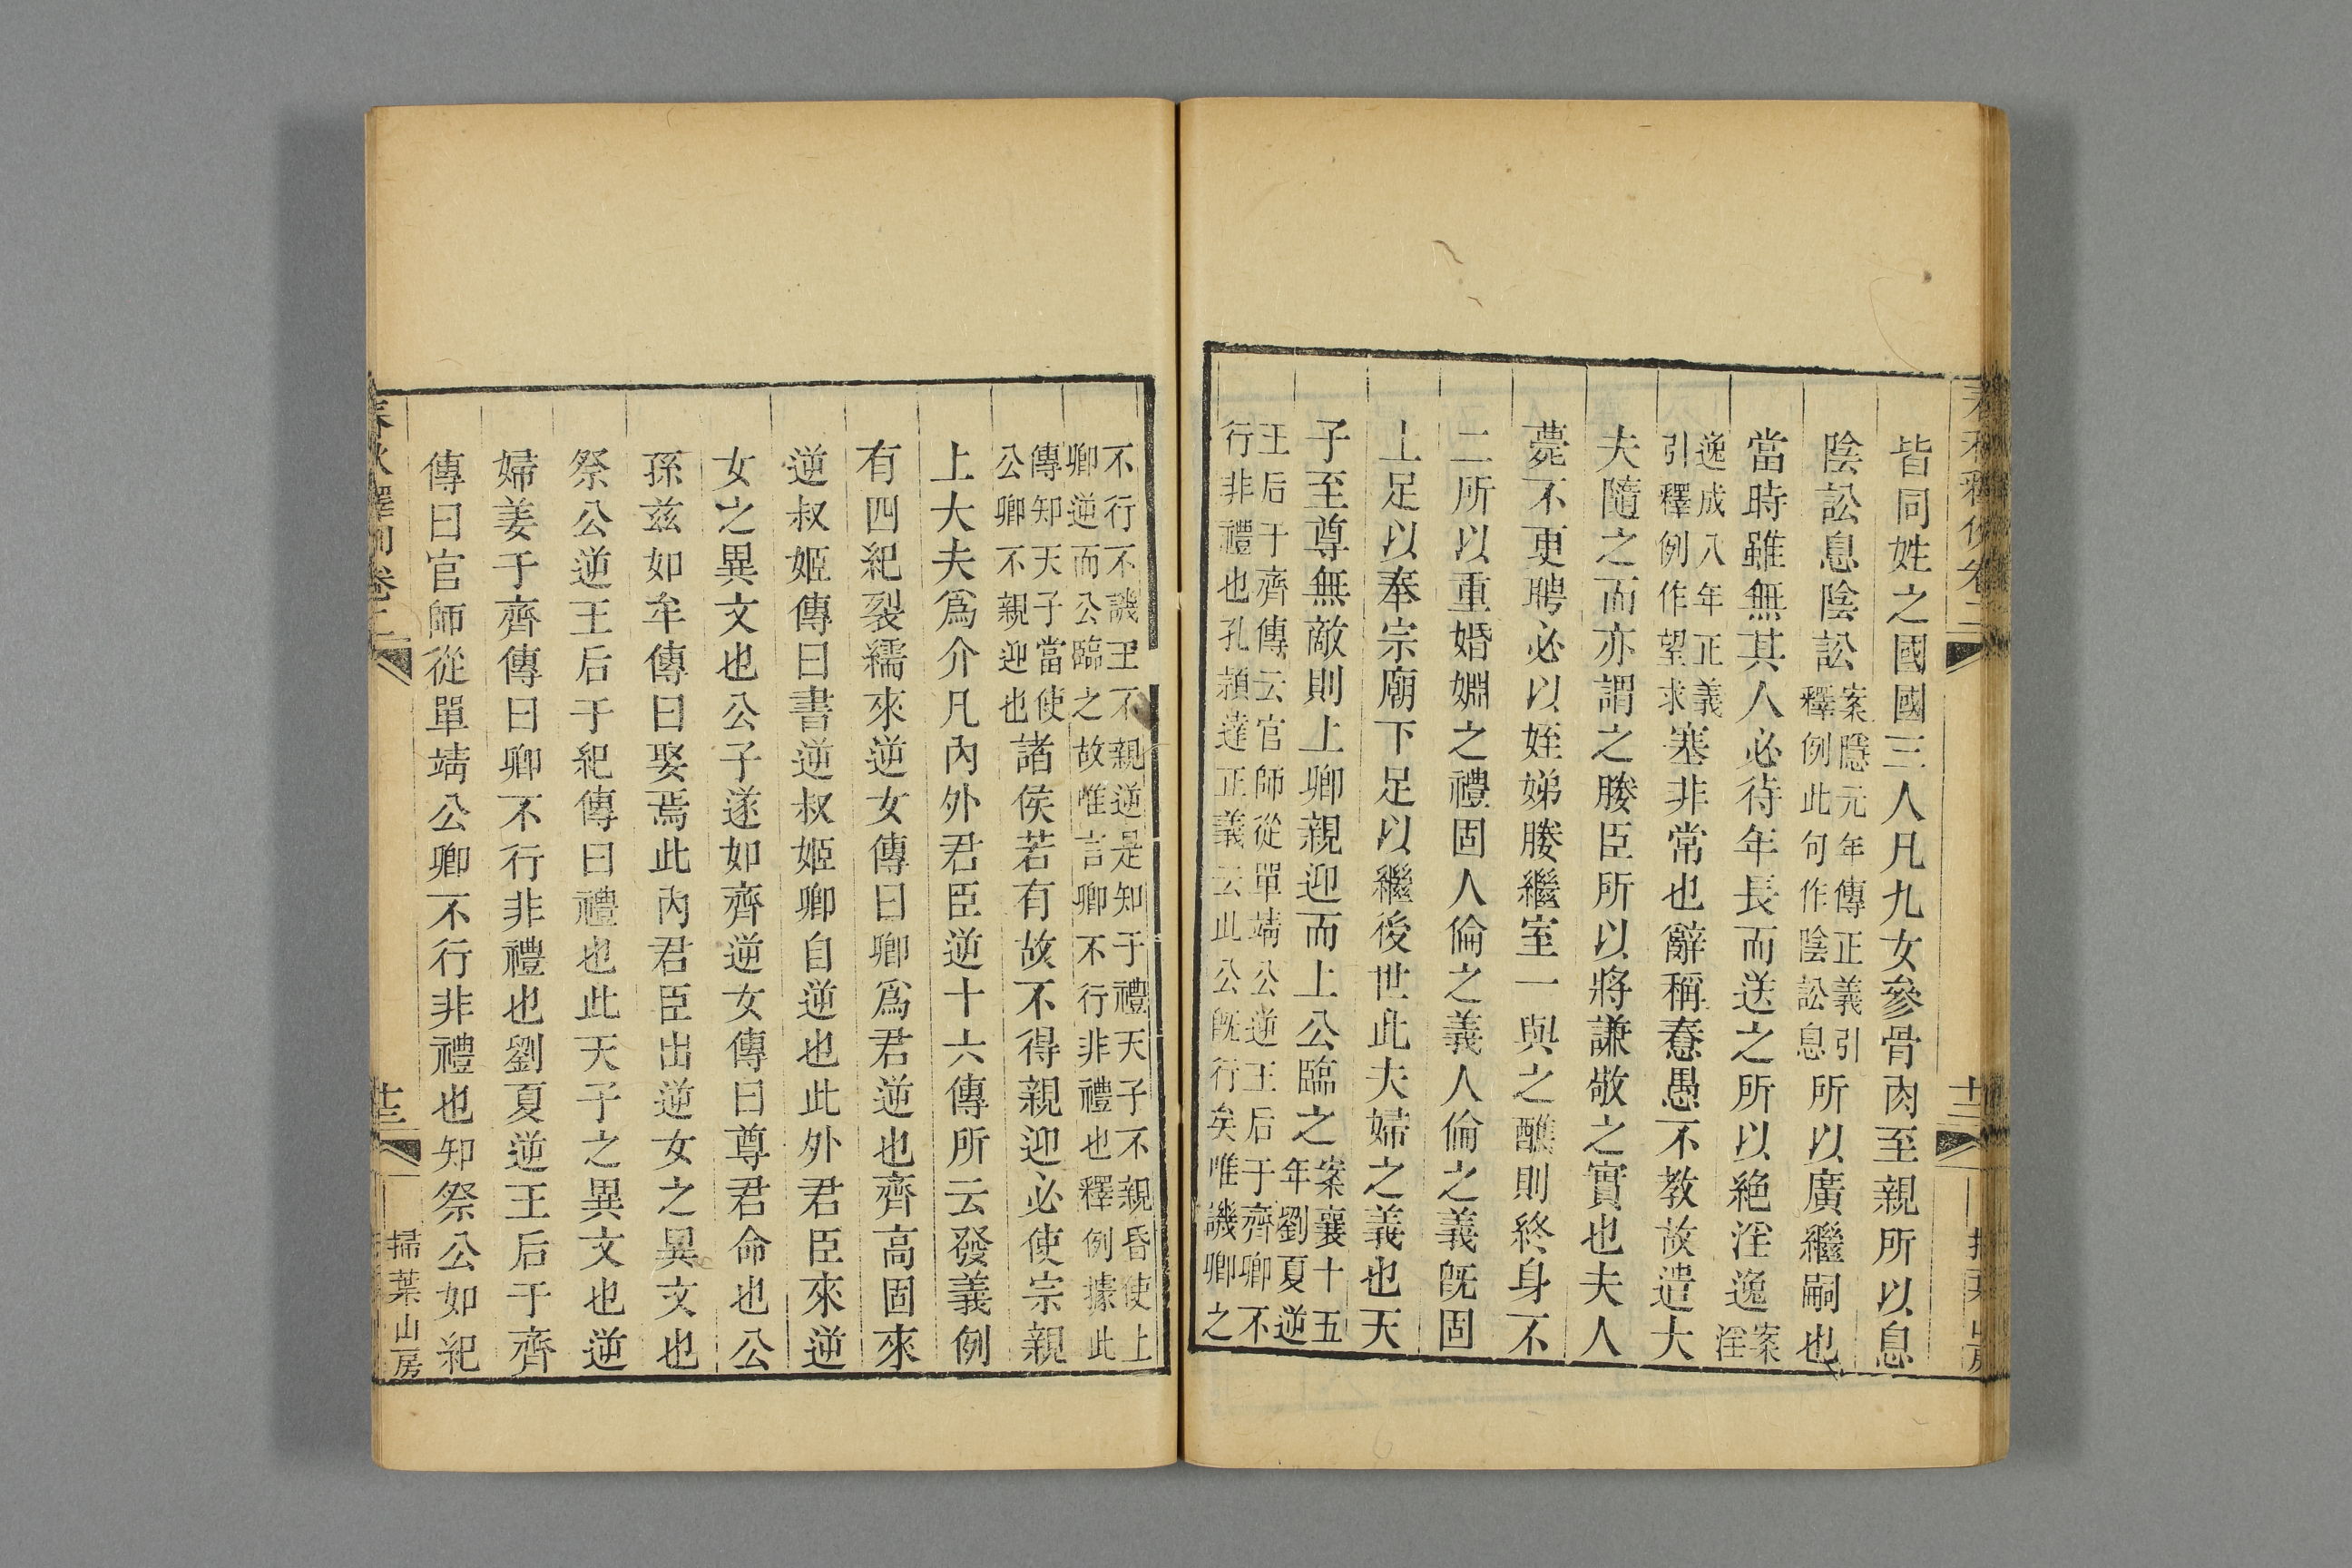 皆同姓之國國三人凡九女參骨肉至親所以息
陰訟息陰訟案隱元年傳正義引釋例此句作陰訟息所以廣繼嗣也
當時雖無其人必待年長而送之所以絶淫逸案淫
逸成八年正義引釋例作望求塞非常也辭稱蠢愚不教故遣大
夫隨之而亦謂之媵臣所以將謙敬之實也夫人
薨不更聘必以姪娣媵繼室一與之醮則終身不
二所以重婚姻之禮固人倫之義人倫之義既固
上足以奉宗廟下足以繼後世此夫婦之義也天
子至尊無敵則上卿親迎而上公臨之案襄十五年劉夏逆
王后于齊傳云官師從單靖公逆王后于齊卿不行非禮也孔穎達正義云此公既行矣唯譏卿之
不行不譏王不親逆是知于禮天子不親昏使上卿逆而公臨之故唯言卿不行非禮也釋例據此
傳知天子當使公卿不親迎也諸侯若有故不得親迎必使宗親
上大夫爲介凡內外君臣逆十六傳所云發義例
有四紀裂繻來逆女傳曰卿爲君逆也齊高固來
逆叔姬傳曰書逆叔姬卿自逆也此外君臣來逆
女之異文也公子遂如齊逆女傳曰尊君命也公
孫兹如牟傳曰娶焉此內君臣出逆女之異文也
祭公逆王后于紀傳曰禮也此天子之異文也逆
婦姜于齊傳曰卿不行非禮也劉夏逆王后于齊
傳曰官師從單靖公卿不行非禮也知祭公如紀
春秋釋例卷二
十三
掃葉山房